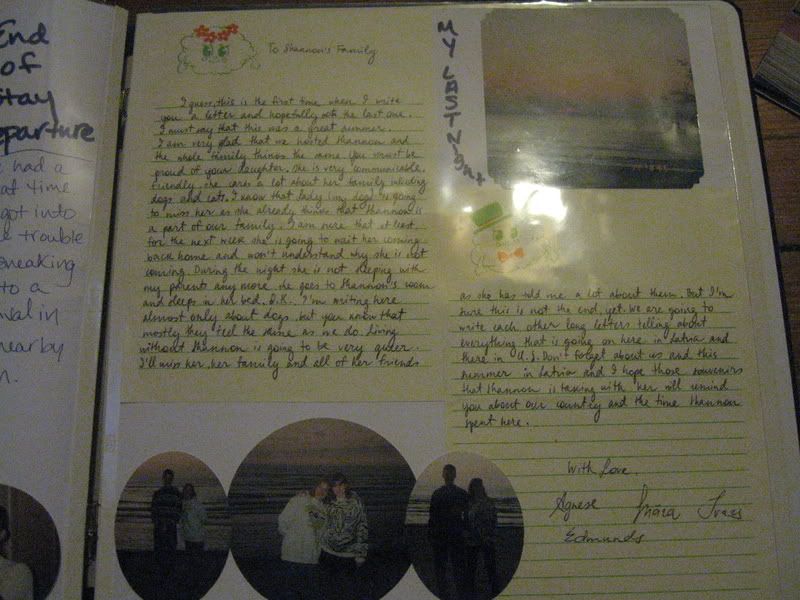 End
of
Stay
Departure
had a
at time
got into
trouble
sneaking
to a
in
nearby
To Shannon's Family
I guess, this is the first time when I write
you a letter and hopefully not the last one.
I must say that this was a great summer.
I am very glad that we hosted Shannon and
the whole family things the same. You must be
proud of your daughter. She is very communicable,
friendly, she cares a lot about her family including
dogs and cats. I know that Lady (my dog) is going
to miss her as she already thinks that Shannon is
a part of our family. I am sure that at least
for the next week she is going to wait her coming
back home and won't understand why she is not
coming. During the night she is not sleeping with
my parents any more, she goes to Shannon's room
and sleeps in her bed. O.K. I'm writing here
almost only about dogs, but you know that
mostly they feel the same as we do. Living
without Shannon is going to be very queer.
I'll miss her, her family and all of her friends
MY LAST Night
as she has told me a lot about them. But I'm
sure this is not the end, yet. We are going to
write each other long letters telling about
everything that is going on here in Latvia and
there in U.S. Don't forget about us and this
summer in Latvia and I hope those souvenirs
that Shannon is taking with her will remind
you about our country and the time Shannon
spent here.
With Love.
Agnese Ināra Ivars
Edmunds